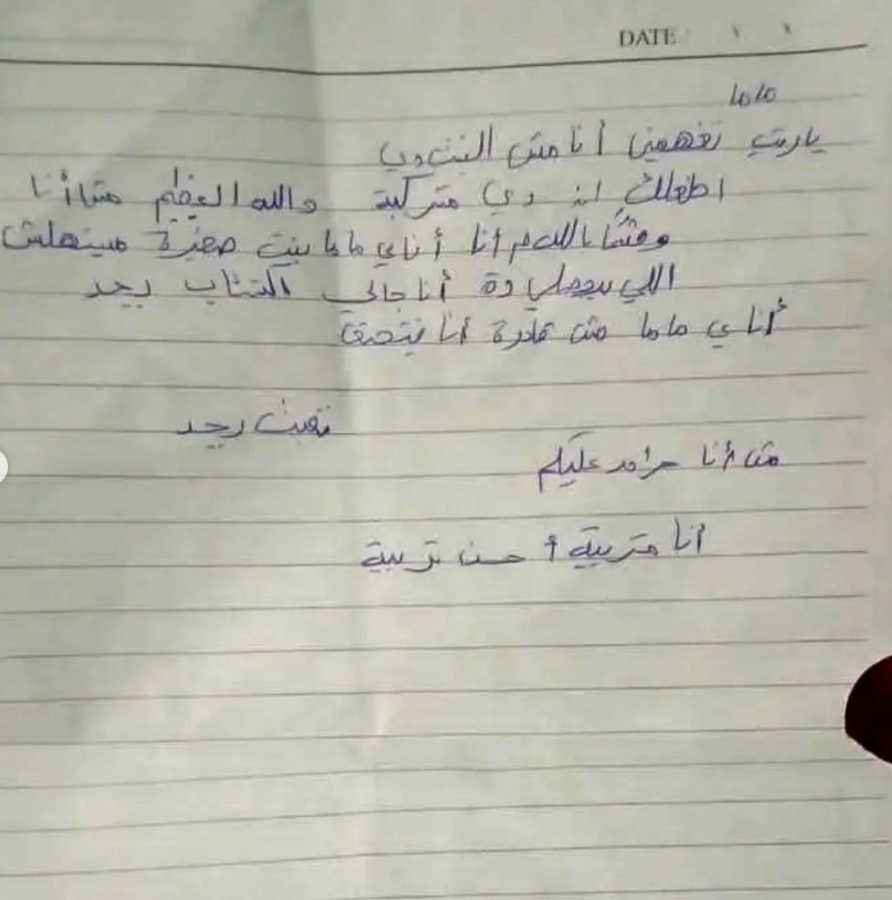 DATE
ماما
ياريت تفهميني أنا مش البنت دي
اطعلك ان دي متركبة والله العظيم مش أنا
وقسما بالله م أنا أنا ي ماما بنت صغيرة ميتهلش
اللي بيحصلي دة أنا جالي اكتئاب بجد
أنا ي ماما مش قادرة أنا بتخنق
تعبت بجد
مش أنا حرام عليكم
أنا متربية أحسن تربية